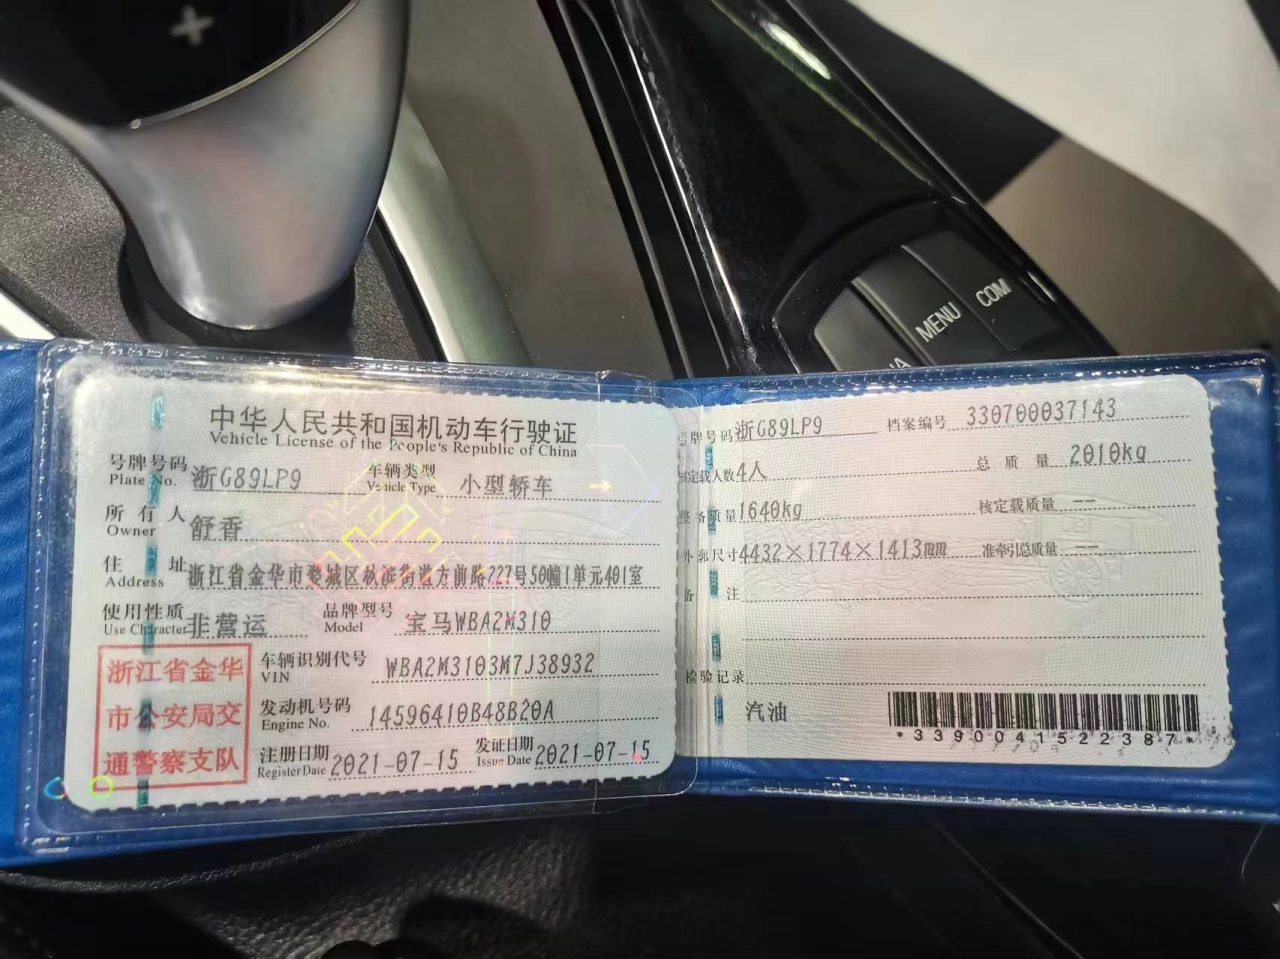 MENU
COM
中华人民共和国机动车行驶证
Vehicle License of the People's Republic of China
号牌号码 浙G89LP9 车辆类型 小型轿车
Plate No. Vehicle Type
所有人 舒香
Owner
住址 浙江省金华市婺城区秋滨街道方前路227号50幢1单元401室
Address
使用性质 非营运 品牌型号 宝马WBA2M310
Use Character Model
浙江省金华
市公安局交
通警察支队
车辆识别代号 WBA2M3103M7J38932
VIN
发动机号码 14596410B48B20A
Engine No.
注册日期 2021-07-15 发证日期 2021-07-15
Register Date Issue Date
号牌号码 浙G89LP9 档案编号 330700037143
核定载人数 4人 总质量 2010kg
整备质量 1640kg 核定载质量 --
外廓尺寸 4432×1774×1413mm 准牵引总质量 --
备注
检验记录
汽油
*3390041522387*